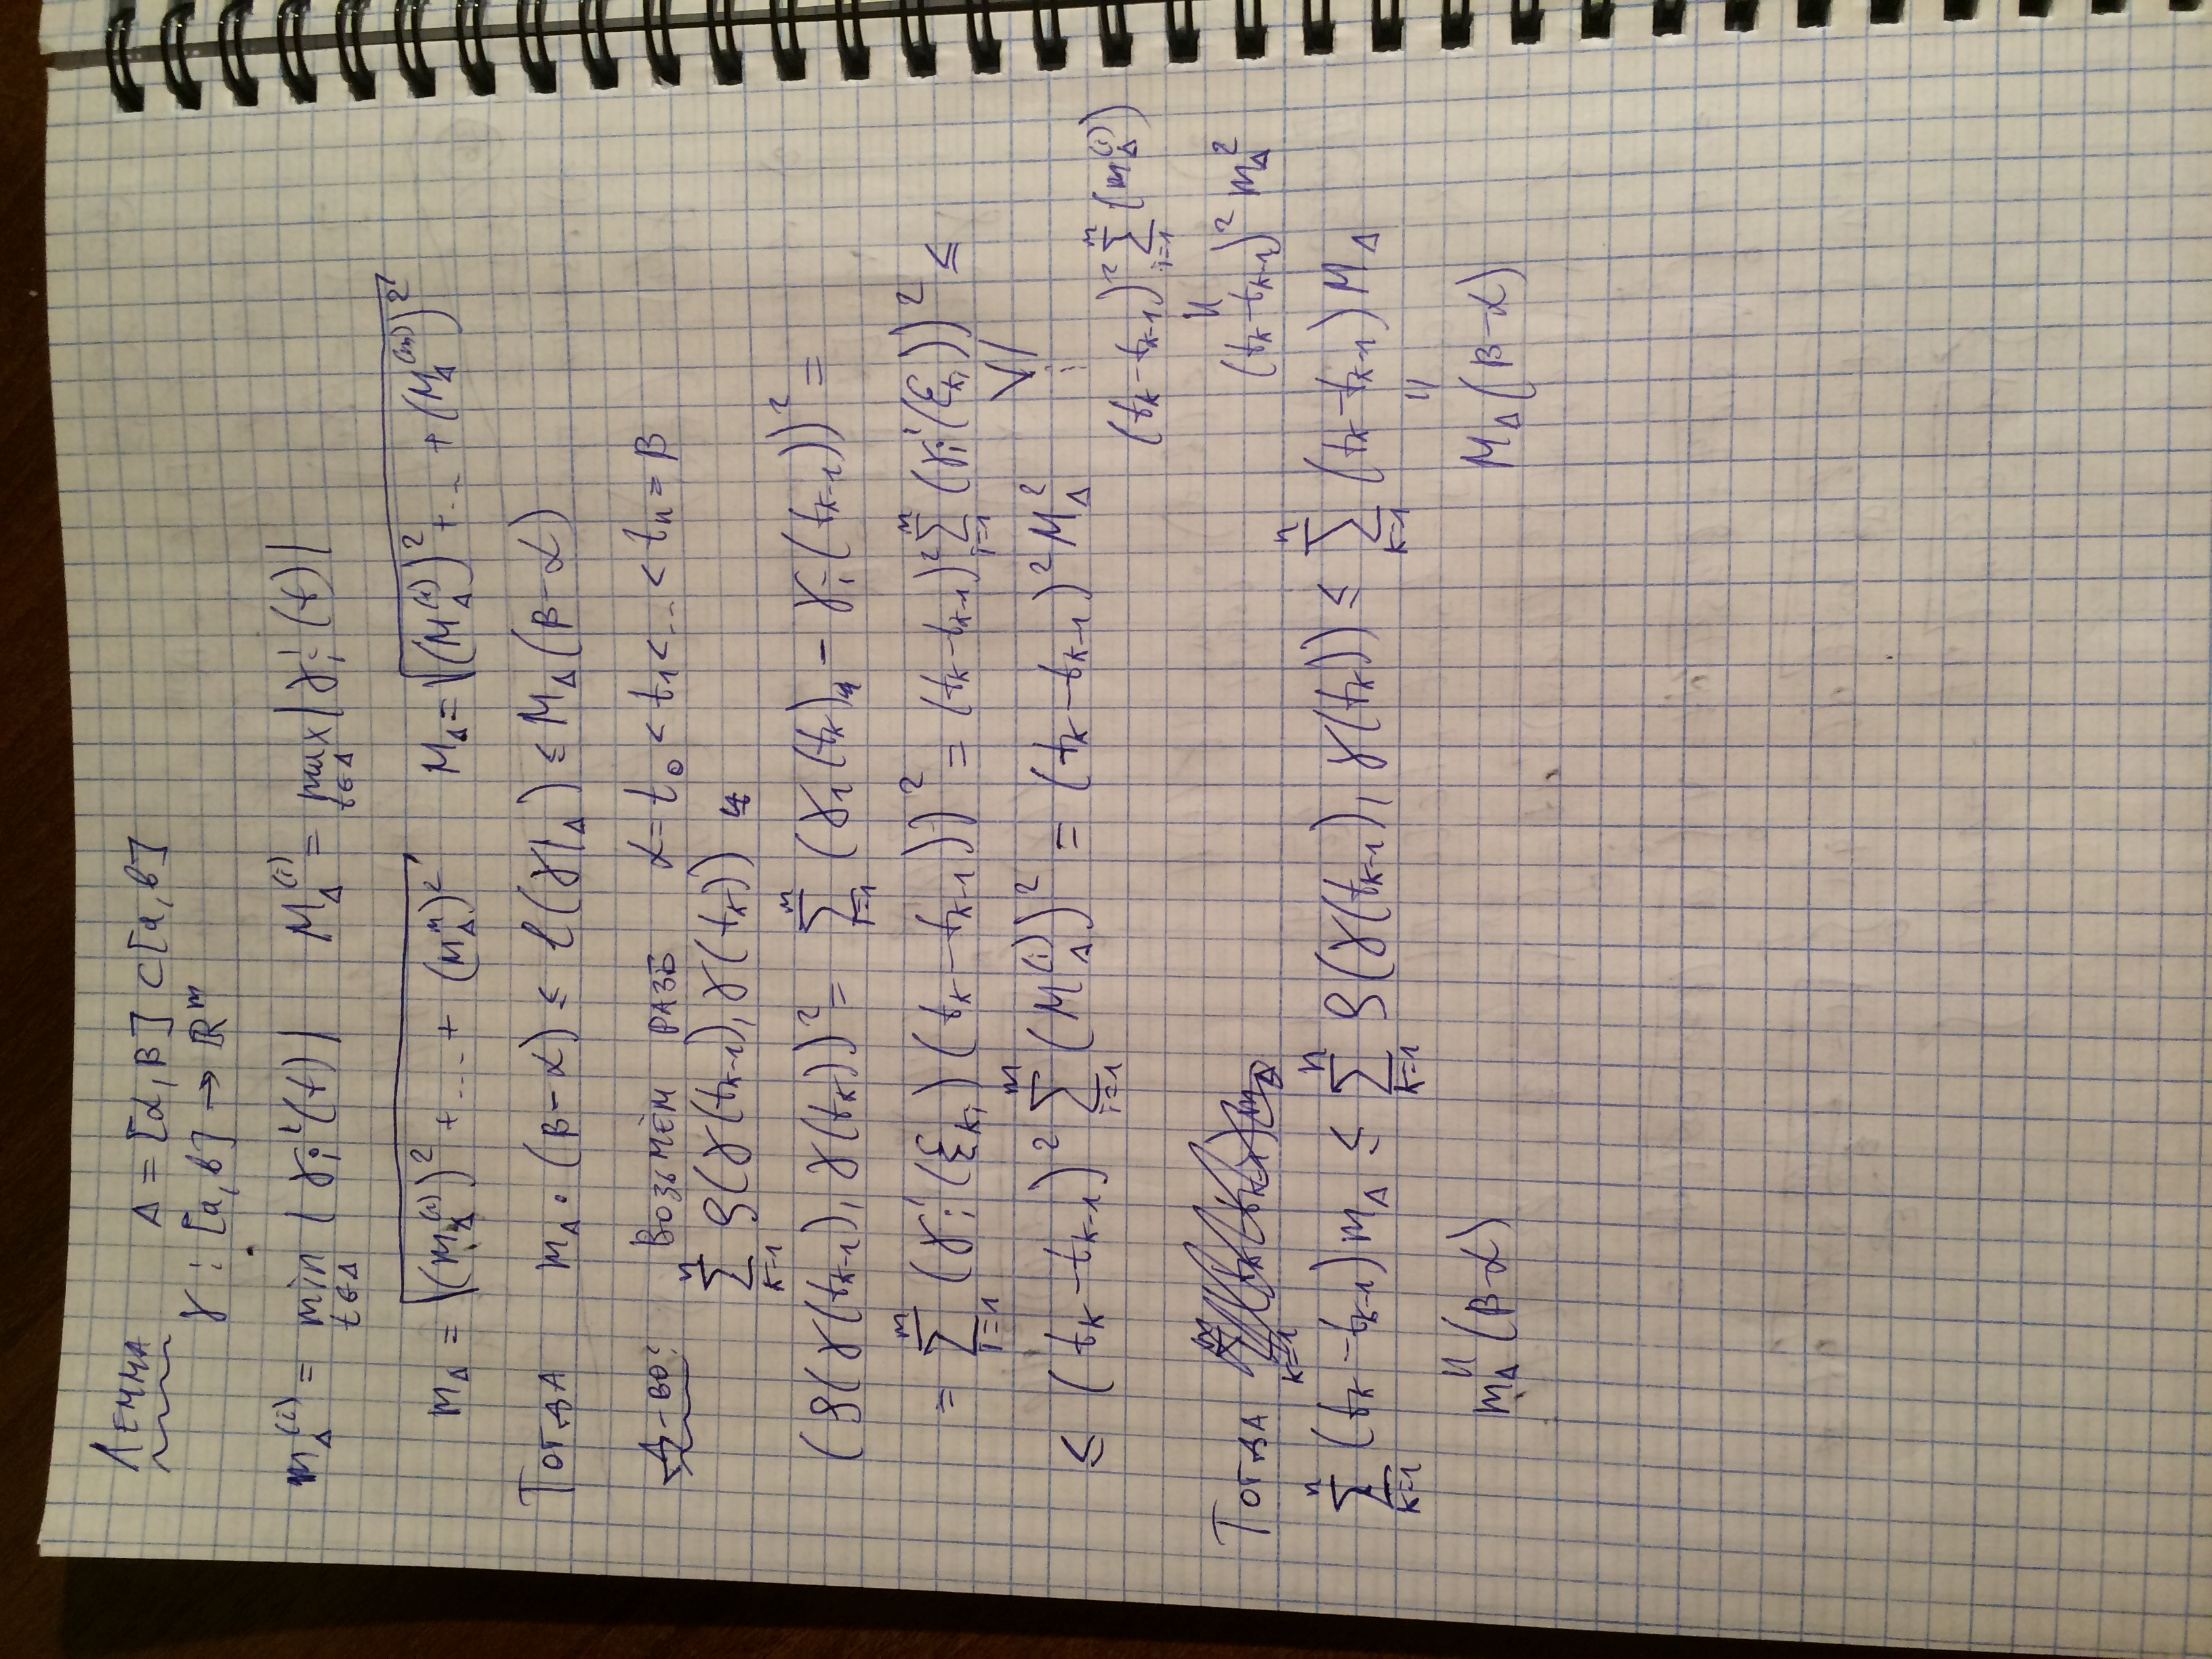 Лемма Δ = [α, β] ⊂ [a, b]
γ : [a, b] → ℝᵐ
m_Δ^(i) = min_{t∈Δ} |γ_i'(t)| M_Δ^(i) = max_{t∈Δ} |γ_i'(t)|
m_Δ = √((m_Δ^(1))² + ... + (m_Δ^m)²) M_Δ = √((M_Δ^(1))² + ... + (M_Δ^(m))²)
Тогда m_Δ · (β - α) ≤ l(γ|_Δ) ≤ M_Δ (β - α)
Д-во: Возьмём разб α = t_0 < t_1 < ... < t_n = β
∑_{k=1}^n ρ(γ(t_{k-1}), γ(t_k))
(ρ(γ(t_{k-1}), γ(t_k))² = ∑_{i=1}^m (γ_1(t_k) - γ_i(t_{k-1}))² =
= ∑_{i=1}^m (γ_i'(ξ_{ki}) (t_k - t_{k-1}))² = (t_k - t_{k-1})² ∑_{i=1}^m (γ_i'(ξ_{ki}))² ≤
≤ (t_k - t_{k-1})² ∑_{i=1}^m (M_Δ^(i))² = (t_k - t_{k-1})² M_Δ²
∨/
⋮
(t_k - t_{k-1})² ∑_{i=1}^m (m_Δ^(i))
=
(t_k - t_{k-1})² m_Δ²
Тогда
∑_{k=1}^n (t_k - t_{k-1}) m_Δ ≤ ∑_{k=1}^n ρ(γ(t_{k-1}), γ(t_k)) ≤ ∑_{k=1}^n (t_k - t_{k-1}) M_Δ
= =
m_Δ (β - α) M_Δ (β - α)